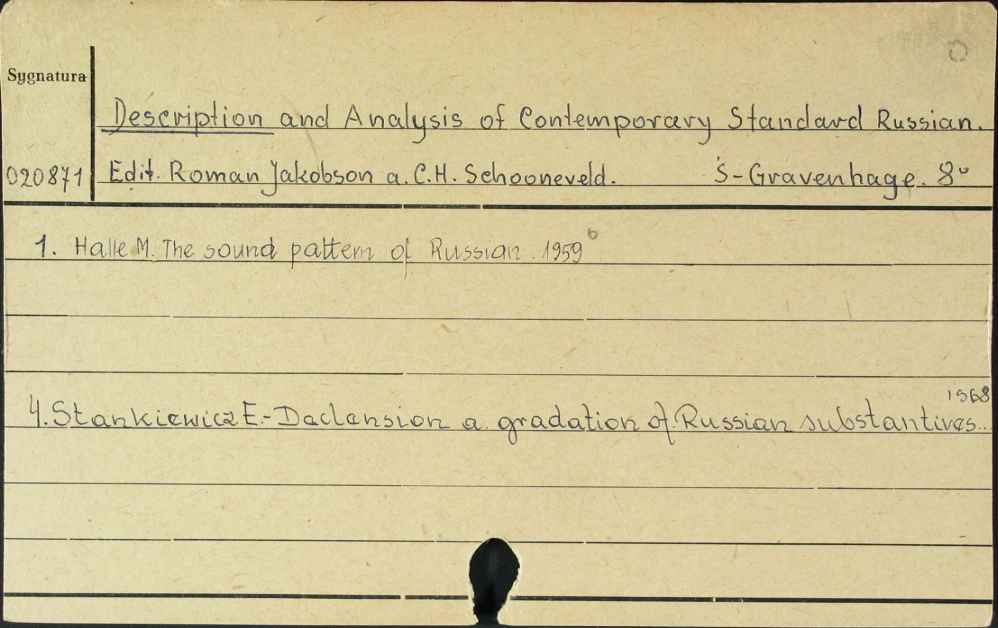 Sygnatura
Description and Analysis of Contemporary Standard Russian.
020871 Edit. Roman Jakobson a. C.H. Schooneveld. 'S-Gravenhage. 8°
1. Halle M. The sound pattern of Russian. 1959
4. Stankiewicz E.- Daclension a gradation of Russian substantives... 1968